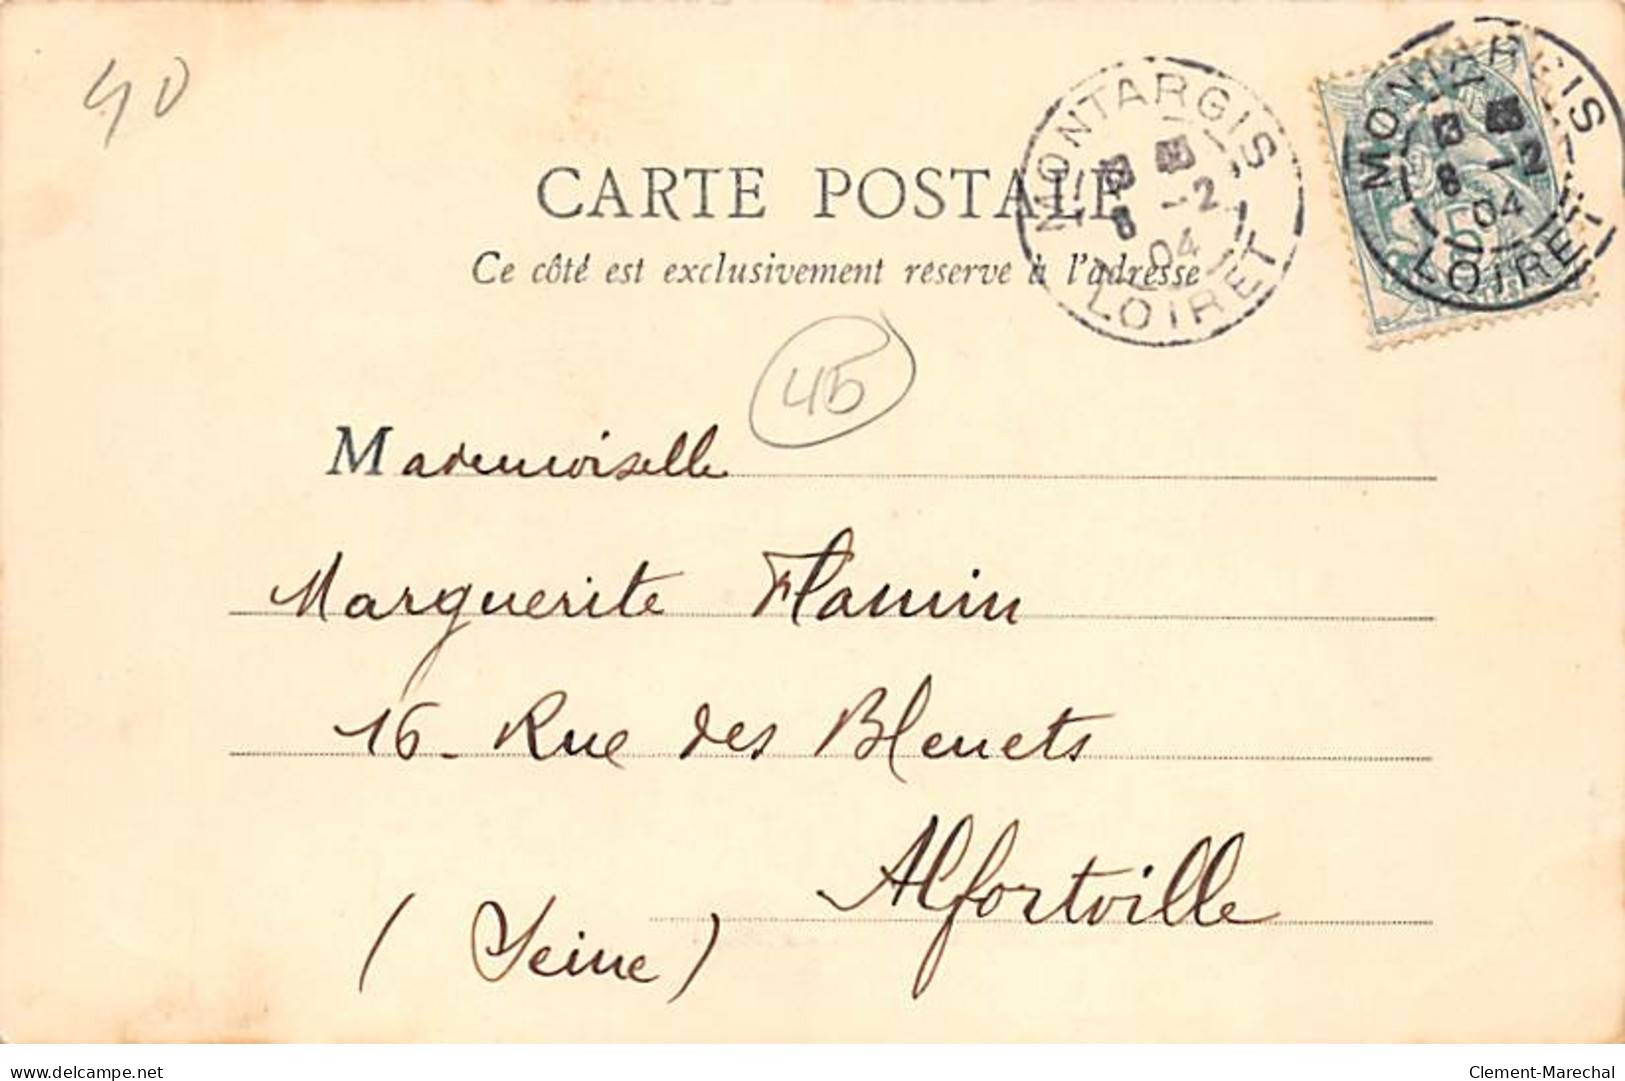 40
MONTARGIS
8 -2
04
LOIRET
MONTARGIS
8 -2
04
LOIRET
5
CARTE POSTALE
Ce côté est exclusivement réservé à l'adresse
45
Mademoiselle
Marguerite Flamin
16 - Rue des Bleuets
Alfortville
(Seine)
delcampe.net
Clement-Marechal